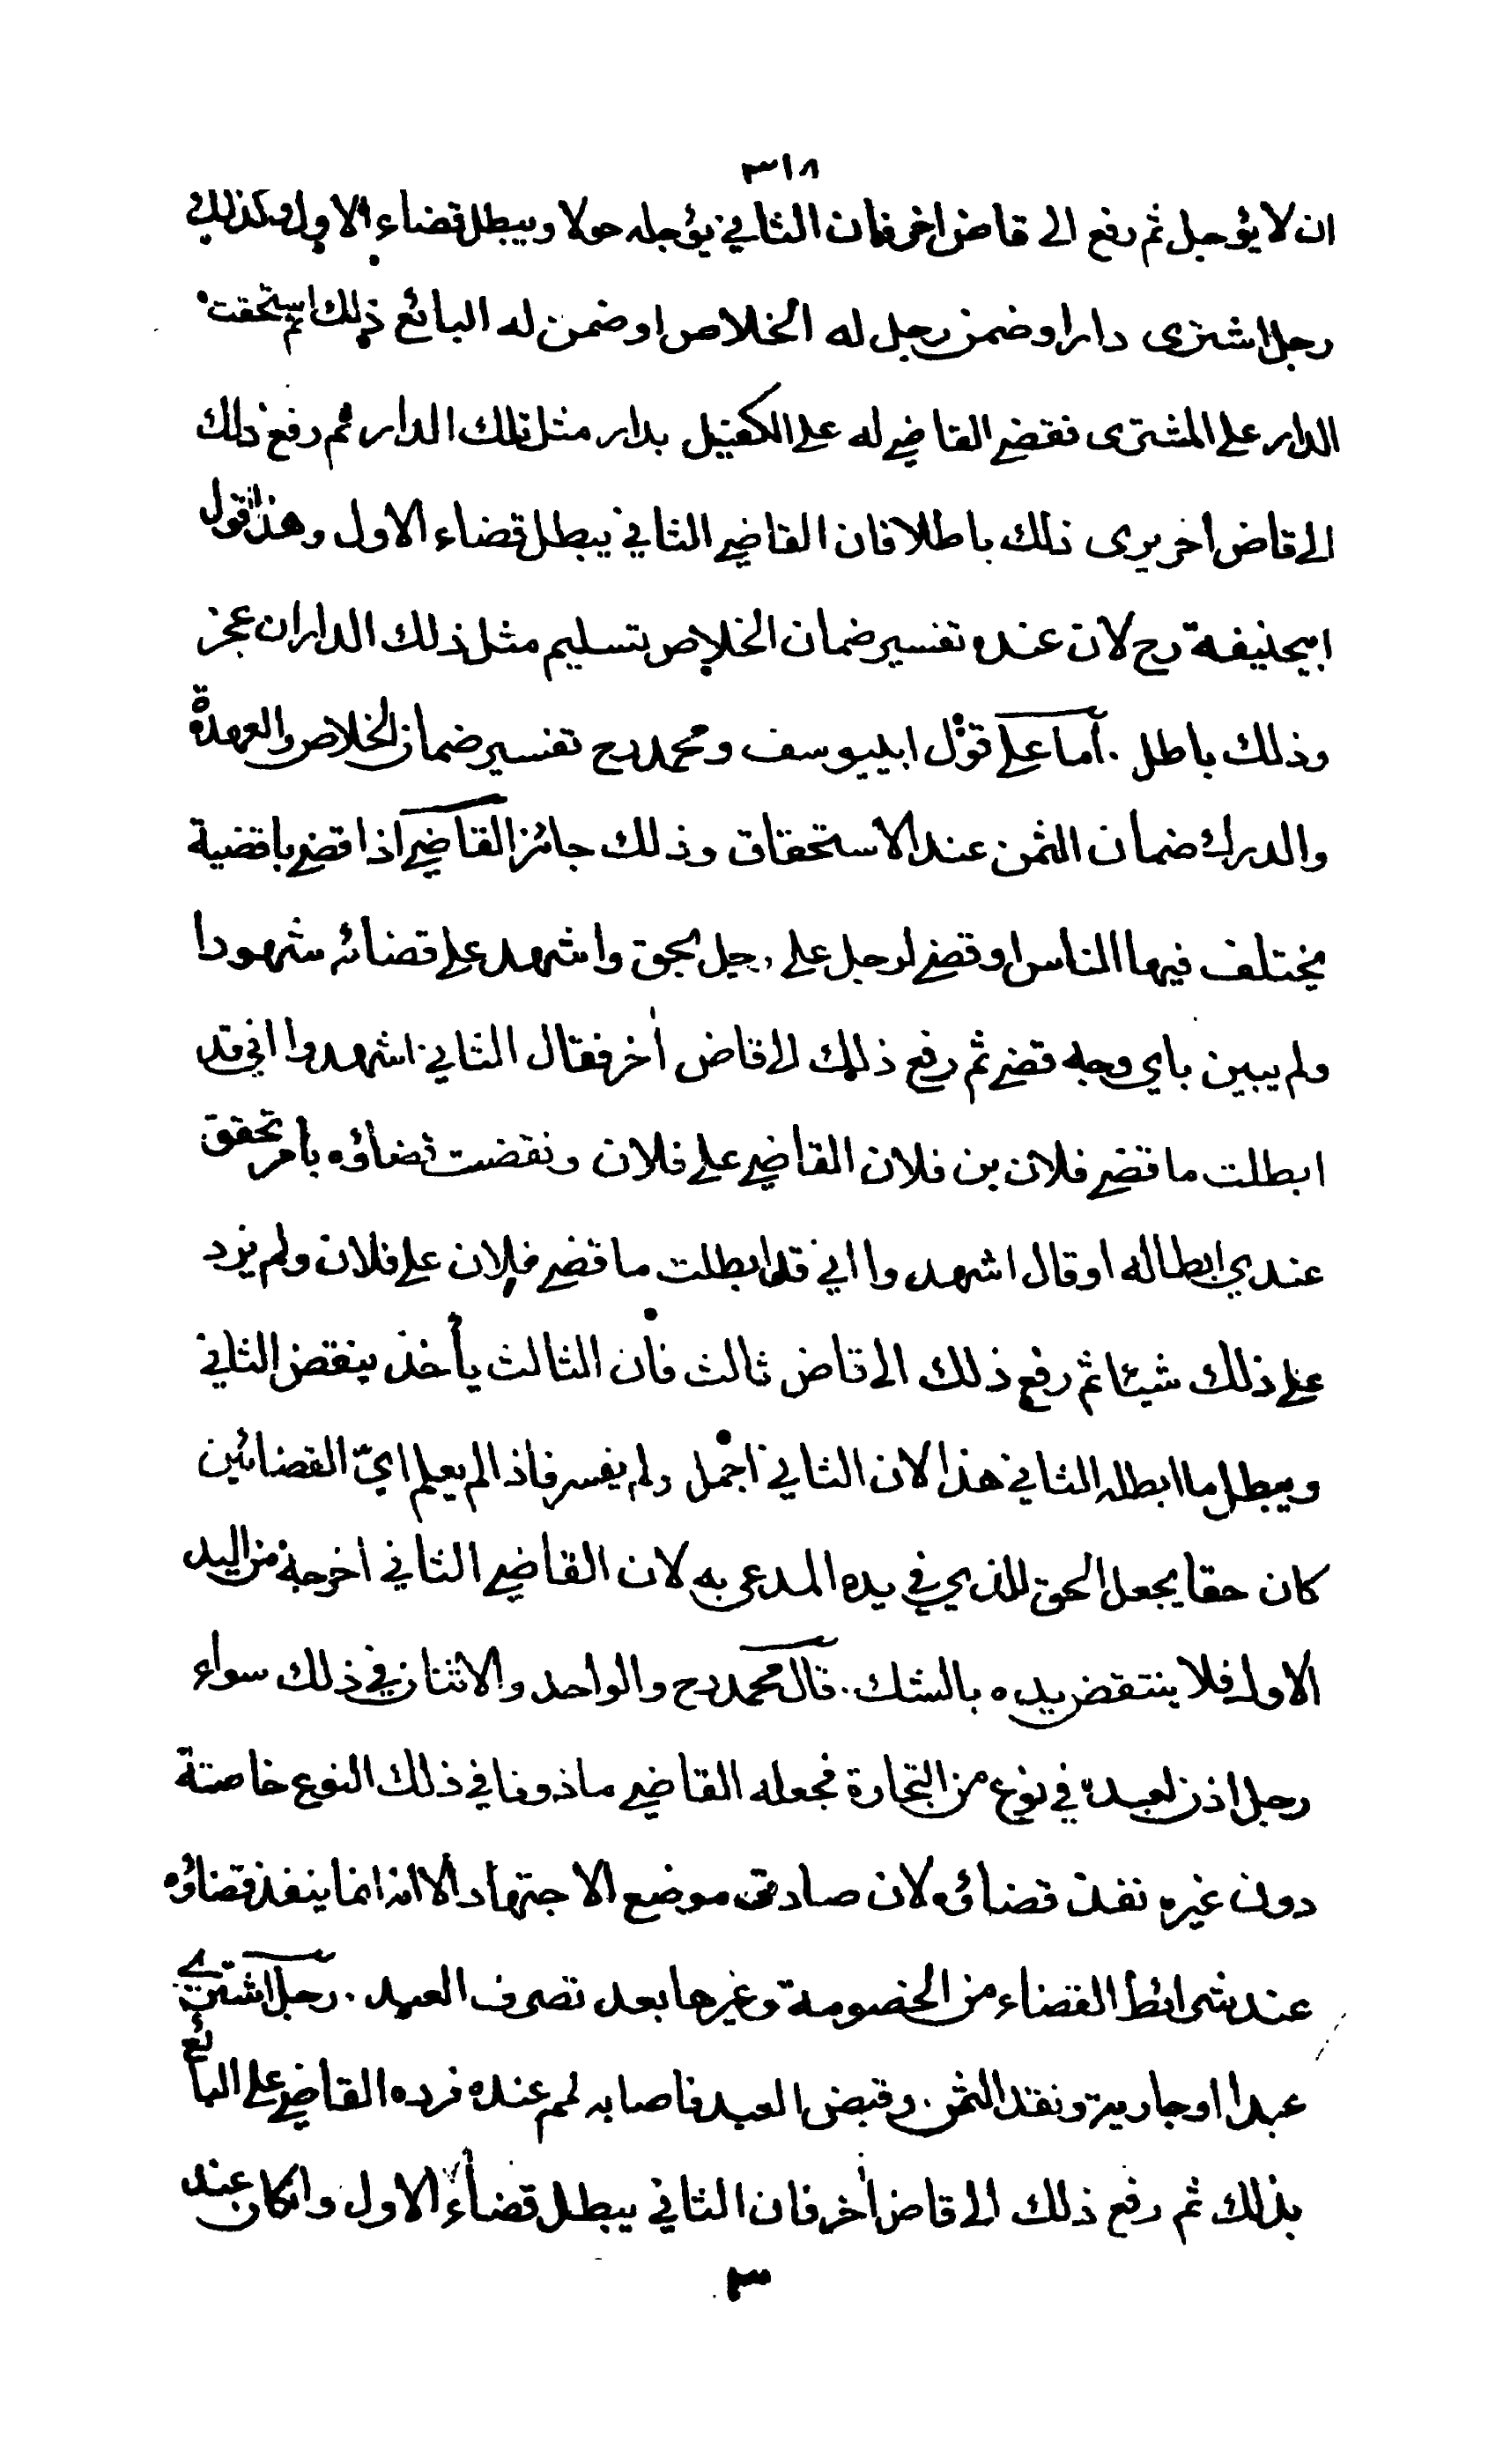 ٣١٨
ان لا يؤجل ثم رفع الى قاض اخر فان الثاني يؤجله حولا ويبطل قضاء الاول وكذلك
رجل اشترى دارا وضمن رجل له الخلاص او ضمن له البائع ذلك ثم استحقت
الدار على المشترى فقضى القاضي له على الكفيل بدار مثل تلك الدار ثم رفع ذلك
الى قاض اخر يرى ذلك باطلا فان القاضي الثاني يبطل قضاء الاول وهذا قول
ابيحنيفة رح لان عنده تفسير ضمان الخلاص بتسليم مثل ذلك الدار ان عجز
وذلك باطل . اما على قول ابييوسف ومحمد رح تفسير ضمان الخلاص والعهدة
والدرك ضمان الثمن عند الاستحقاق وذلك جائز القاضي اذا قضى باقضية
يختلف فيها الناس او قضى لرجل على رجل بحق واشهد على قضائه شهودا
ولم يبين باي وجه قضى ثم رفع ذلك الى قاض أخر فقال الثاني اشهدوا اني قد
ابطلت ما قضى فلان بن فلان القاضي على فلان ونقضت قضاؤه بامر تحقق
عندي ابطاله او قال اشهدوا اني قد ابطلت ما قضى فلان على فلان ولم يزد
على ذلك شيئا ثم رفع ذلك الى قاض ثالث فان الثالث يأخذ بنقض الثاني
ويبطل ما ابطله الثاني هذا لان الثاني اجمل ولم يفسر فاذا لم يعلم ايّ القضائين
كان حقا يجعل الحق للذي في يده المدعى به لان القاضي الثاني اخرجه من اليد
الاولى فلا ينتقض يده بالشك . قال محمد رح والواحد والاثنان في ذلك سواء
رجل اذن لعبده في نوع من التجارة فجعله القاضي ماذونا في ذلك النوع خاصتة
دون غيره نفذ قضاؤه لان صادق موضع الاجتهاد الا انه انما ينفذ قضاؤه
عند شرائط القضاء من الخصومة وغيرها بعد تصرف العبد . رجل اشترے
عبدا او جارية ونقد الثمن . وقبض العبد فاصابه لمم عنده فرده القاضي على البائع
بذلك ثم رفع ذلك الى قاض أخر فان الثاني يبطل قضاء الاول وانكان عند
٣